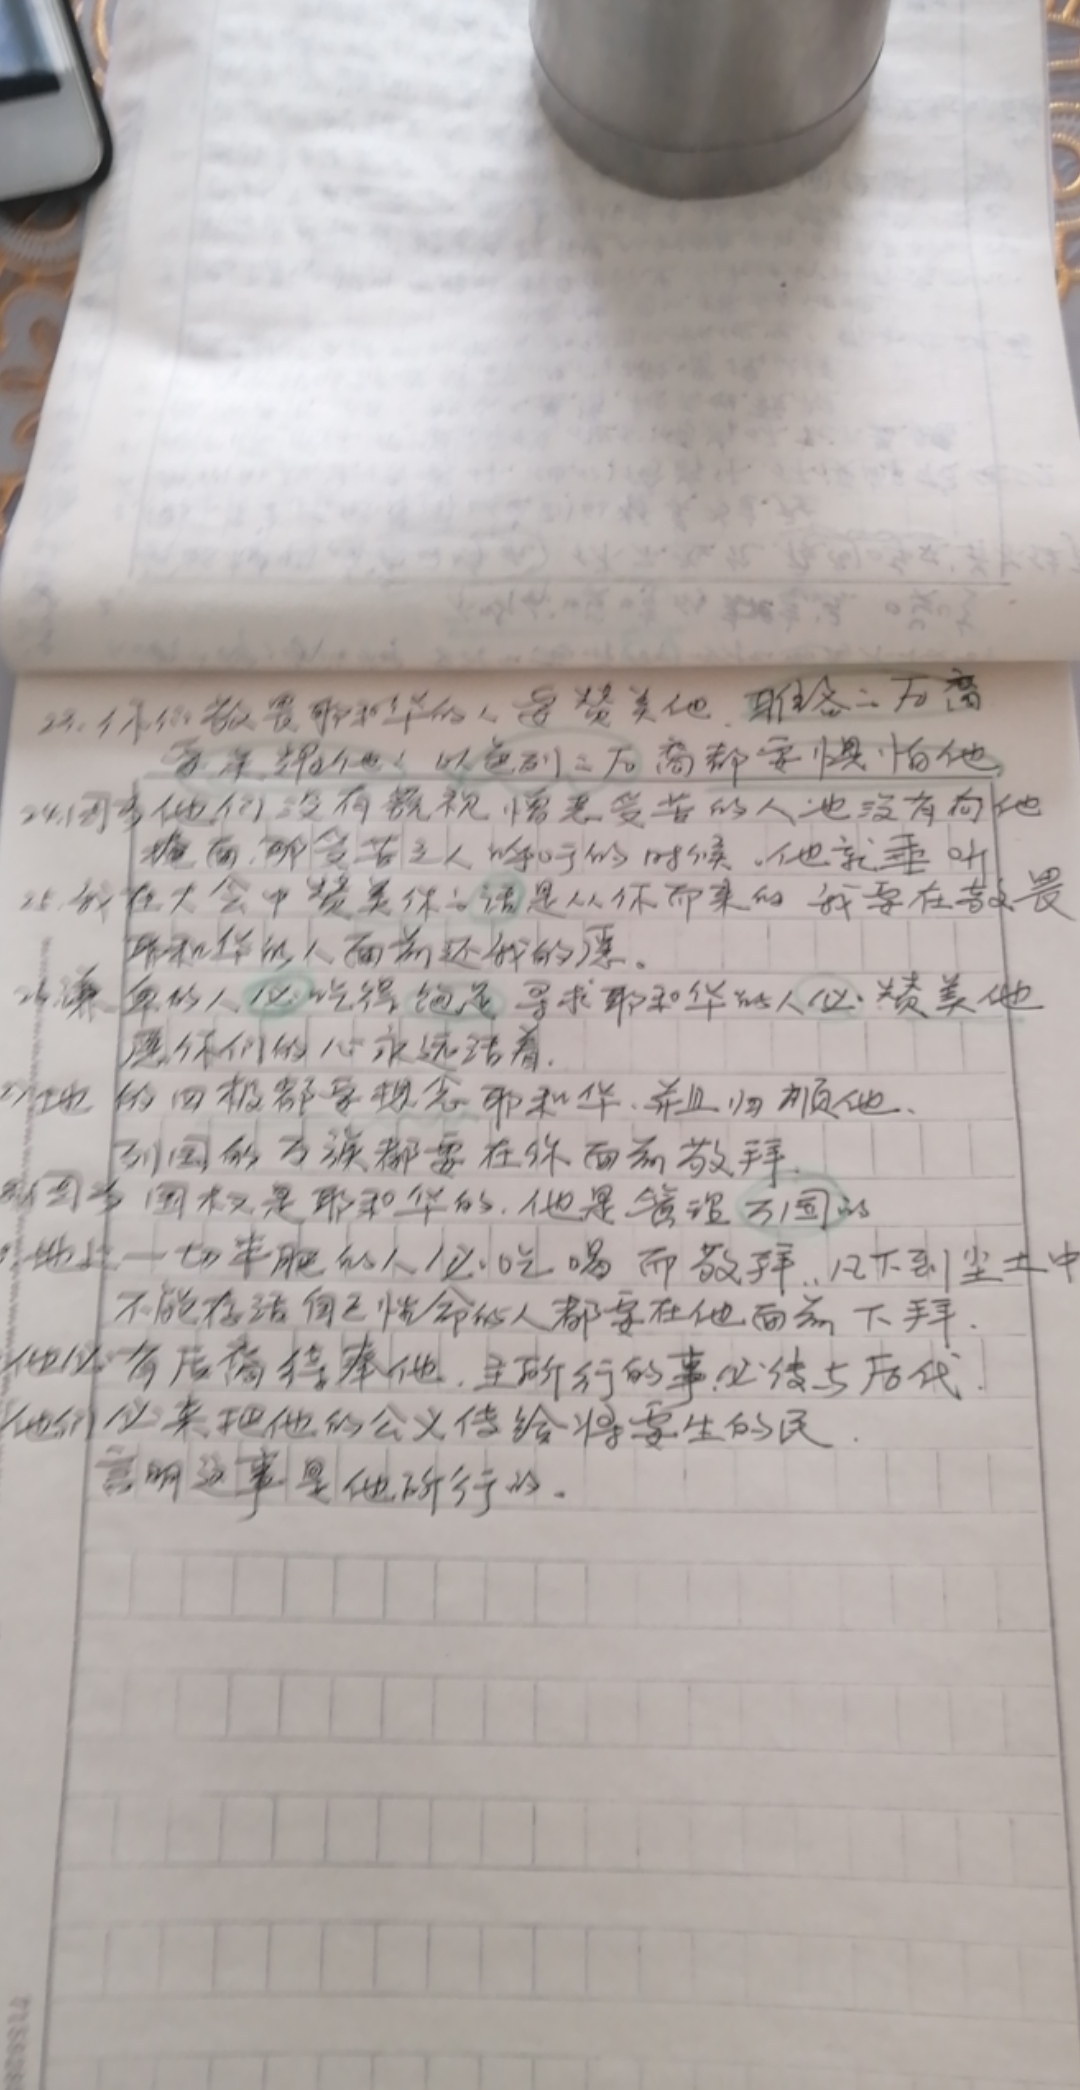 23.你们敬畏耶和华的人要赞美他,雅各二后裔
要荣耀他;以色列二后裔都要惧怕他
24.因为他们没有藐视憎恶受苦的人也没有向他
掩面.那受苦之人呼吁的时候.他就垂听
25.我在大会中赞美你的话是从你而来的 我要在敬畏
耶和华的人面前还我的愿。
26.谦卑的人必吃得饱足 寻求耶和华的人必赞美他
愿你们的心永远活着.
地的四极都要想念耶和华.并且归顺他.
列国的万族都要在你面前敬拜.
因为国权是耶和华的.他是管理万国的
地上一切丰肥的人必吃喝而敬拜..凡下到尘土中
不能存活自己性命的人都要在他面前下拜.
他必有后裔侍奉他.主所行的事必传与后代.
他们必来把他的公义传给将要生的民.
言明这事是他所行的.